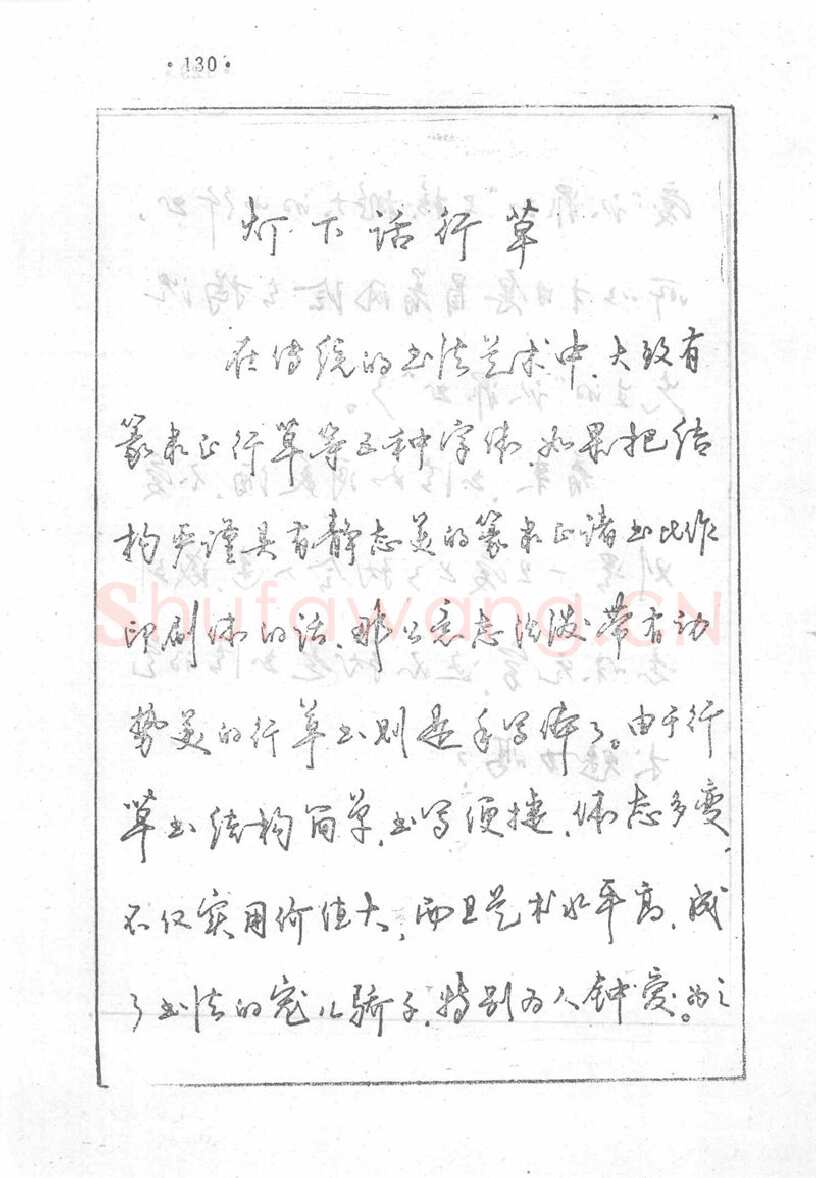 ·130·
灯下话行草
在传统的书法艺术中,大致有
篆隶正行草等五种字体,如果把结
构严谨具有静态美的篆隶正诸书比作
印刷体的话,那么意态活泼带有动
势美的行草书则是手写体了。由于行
草书结构简单,书写便捷,体态多变,
不仅实用价值大,而且艺术水平高,成
了书法的宠儿骄子,特别为人钟爱。为之
Shufawang.CN